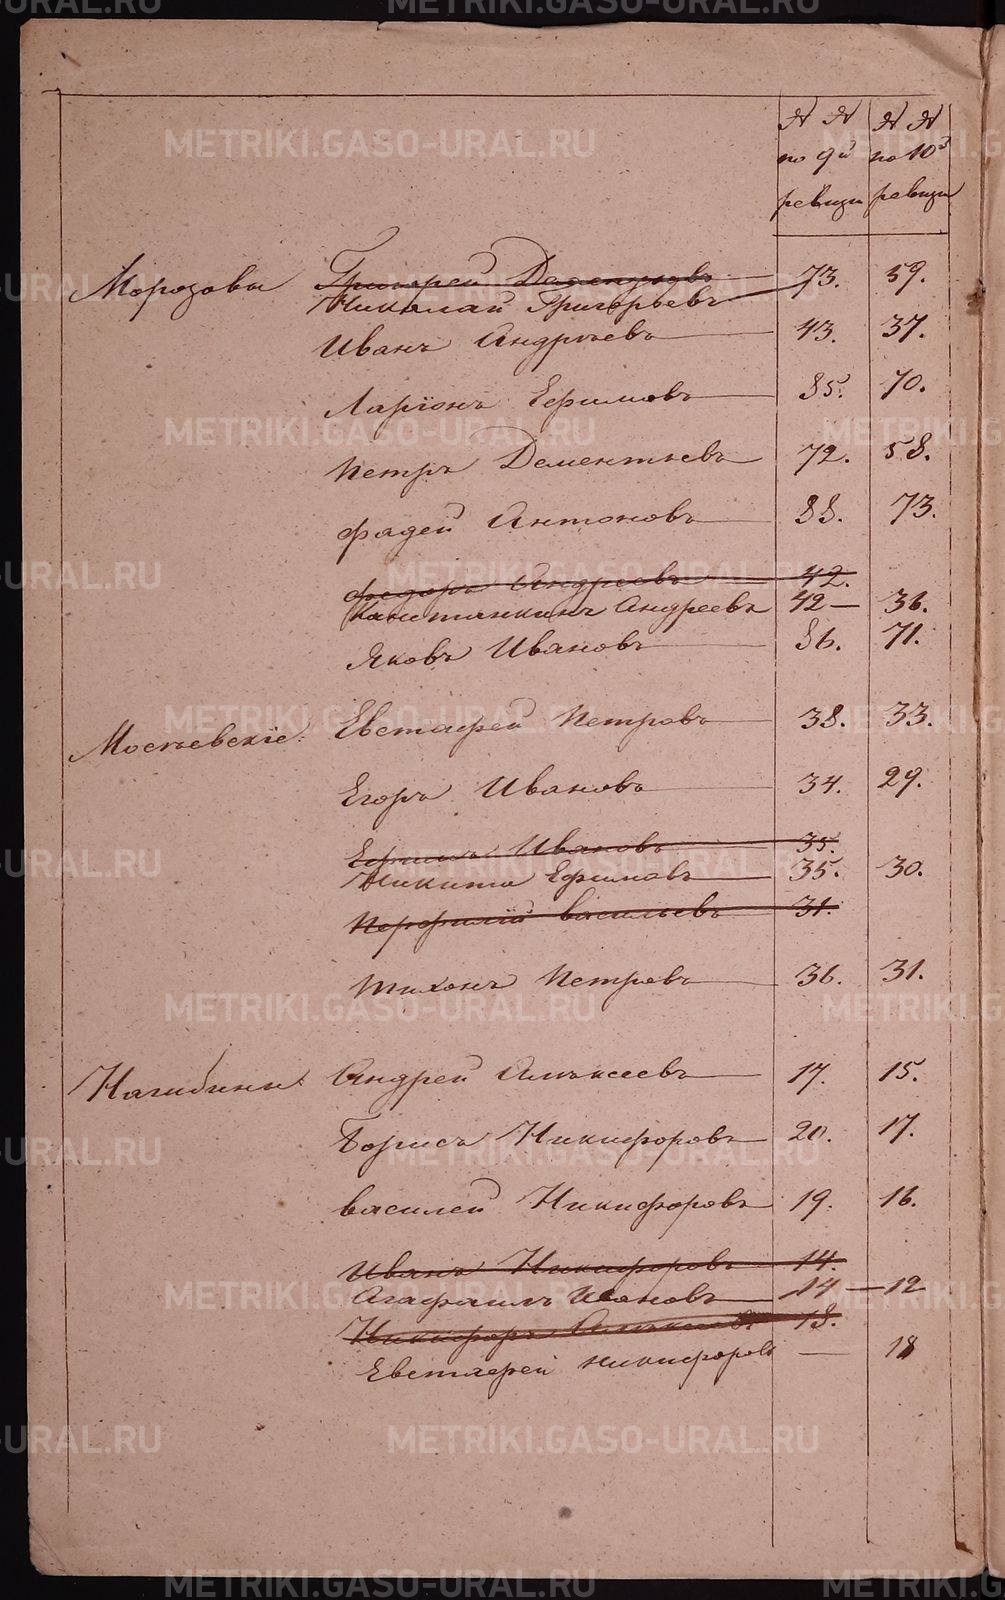 № № № №
по 9й по 10й
ревизіи ревизіи
Морозовы Григорей Дементьевъ 73. 59.
Николай Григорьевъ
Иванъ Андреевъ 43. 37.
Ларіонъ Ефимовъ 85. 70.
Петръ Дементьевъ 72. 58.
Фадей Антоновъ 88. 73.
Федоръ Андреевъ 42.
Констянкинъ Андреевъ 42 — 36.
Яковъ Ивановъ 86. 71.
Мостъевскіе: Евстафей Петровъ 38. 33.
Егоръ Ивановъ 34. 29.
Ефимъ Ивановъ 35.
Никита Ефимовъ 35. 30.
Перфилій Васильевъ 31.
Тихонъ Петровъ 36. 31.
Нагибины: Андрей Алексеевъ 17. 15.
Борисъ Никифоровъ 20. 17.
Василей Никифоровъ 19. 16.
Иванъ Никифоровъ 14.
Агафаилъ Ивановъ 14 — 12
Никифоръ 18.
Евстафей Никифоровъ — 18
METRIKI.GASO-URAL.RU